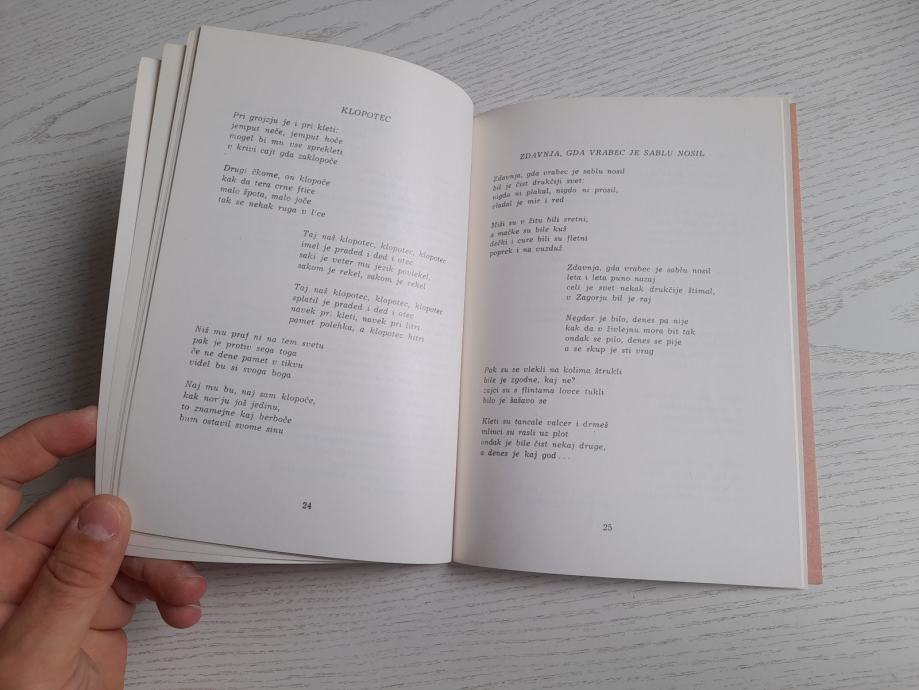 KLOPOTEC
Pri grojzju je i pri kleti:
jemput neče, jemput hoče
mogel bi mu vse sprekleti
v krivi cajt gda zaklopoče
Drugi čkome, on klopoče
kak da tera crne ftice
malo špota, malo joče
tak se nekak ruga v lice
Taj naš klopotec, klopotec, klopotec
imel je praded i ded i otec
saki je veter mu jezik povlekel,
sakom je rekel, sakom je rekel
Taj naš klopotec, klopotec, klopotec
splatil je praded i ded i otec
navek pri kleti, navek pri litri
pamet polehka, a klopotec hitri
Niš mu praf ni na tem svetu
pak je protiv sega toga
če ne dene pamet v tikvu
videl bu si svoga boga
Naj mu bu, naj sam klopoče,
kak norju još jedinu,
to znamejne kaj berboče
bum ostavil svome sinu
24
ZDAVNJA, GDA VRABEC JE SABLU NOSIL
Zdavnja, gda vrabec je sablu nosil
bil je čist drukčiji svet:
nigdo ni plakal, nigdo ni prosil,
vladal je mir i red
Miši su v žitu bili sretni,
a mačke su bile kuš
dečki i cure bili su fletni
poprek i na vuzduž
Zdavnja, gda vrabec je sablu nosil
leta i leta puno nazaj
celi je svet nekak drukčije štimal,
v Zagorju bil je raj
Negdar je bilo, denes pa nije
kak da v živlejnu mora bit tak
ondak se pilo, denes se pije
a se skup je sti vrag
Pak su se vlekli na kolima štrukli
bile je zgodne, kaj ne?
zajci su s flintama lovce tukli
bilo je šašavo se
Kleti su tancale valcer i drmeš
mlinci su rasli uz plot
ondak je bile čist nekaj druge,
a denes je kaj god . . .
25